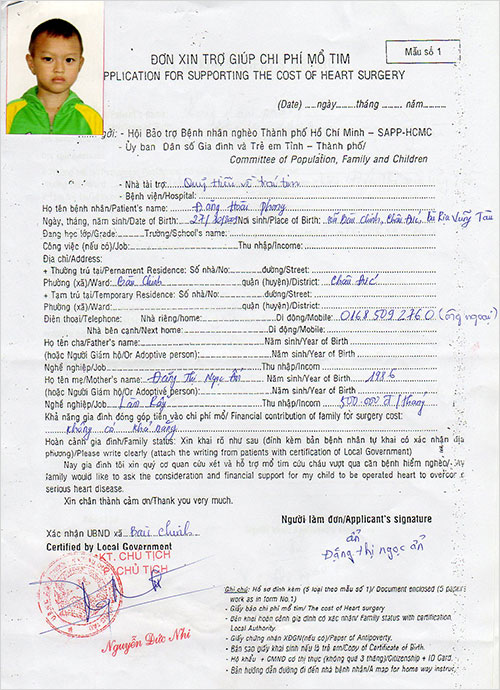 ĐƠN XIN TRỢ GIÚP CHI PHÍ MỔ TIM
Mẫu số 1
APPLICATION FOR SUPPORTING THE COST OF HEART SURGERY
(Date) .....ngày............tháng ........... năm............
gởi: - Hội Bảo trợ Bệnh nhân nghèo Thành phố Hồ Chí Minh – SAPP-HCMC
- Ủy ban Dân số Gia đình và Trẻ em Tỉnh – Thành phố/
Committee of Population, Family and Children
- Nhà tài trợ
- Bệnh viện/Hospital:
Họ tên bệnh nhân/Patient's name: Đặng Hoài Phong
Ngày, tháng, năm sinh/Date of Birth: Nơi sinh/Place of Birth: Bàu Chinh, Châu Đức, Bà Rịa Vũng Tàu
Đang học lớp/Grade: Trường/School's name:
Công việc (nếu có)/Job: Thu nhập/Income:
Địa chỉ/Address:
+ Thường trú tại/Pernament Residence: Số nhà/No: đường/Street:
Phường (xã)/Ward: Bàu Chinh quận (huyện)/District: Châu Đức
+ Tạm trú tại/Temporary Residence: Số nhà/No: đường/Street:
Phường (xã)/Ward: quận (huyện)/District:
Điện thoại/Telephone: Nhà riêng/home: Di động/Mobile: 0168 509 2760 (ông ngoại)
Nhà bên cạnh/Next home: Di động/Mobile:
Họ tên cha/Father's name: Năm sinh/Year of Birth
(hoặc Người Giám hộ/Or Adoptive person): Năm sinh/Year of Birth
Nghề nghiệp/Job Thu nhập/Incom
Họ tên mẹ/Mother's name: Đặng Thị Ngọc Ẩn Năm sinh/Year of Birth 1986
(hoặc Người Giám hộ/Or Adoptive person): Năm sinh/Year of Birth
Nghề nghiệp/Job Thu nhập/Incom 500.000 đ/tháng
Khả năng gia đình đóng góp tiền vào chi phí mổ/ Financial contribution of family for surgery cost:
không có khả năng
Hoàn cảnh gia đình/Family status: Xin khai rõ như sau (đính kèm bản bệnh nhân tự khai có xác nhận địa
phương)/Please write clearly (attach the writing from patients with certification of Local Government)
Nay gia đình tôi xin quý cơ quan cứu xét và hỗ trợ mổ tim cứu cháu vượt qua căn bệnh hiểm nghèo./My
family would like to ask the consideration and financial support for my child to be operated heart to overcom a
serious heart disease.
Xin chân thành cảm ơn/Thank you very much.
Người làm đơn/Applicant's signature
Xác nhận UBND xã Bàu Chinh
Certified by Local Government
ẩn
Đặng thị ngọc ẩn
KT. CHỦ TỊCH
CHỦ TỊCH
Nguyễn Đức Nhi
Ghi chú: Hồ sơ đính kèm (5 loại theo mẫu số 1)/ Document enclosed (5 papers
work as in form No.1)
- Giấy báo chi phí mổ tim/ The cost of Heart surgery
- Đơn khai hoàn cảnh gia đình có xác nhận/ Family status with certification
Local Authority.
- Giấy chứng nhận XĐGN(nếu có)/Paper of Antipoverty.
- Bản sao giấy khai sinh nếu là trẻ em/Copy of Certificate of Birth.
- Hộ khẩu + CMND có thị thực (không quá 3 tháng)/Citizenship + ID Card.
- Bản hướng dẫn đường đi đến nhà bệnh nhân/A map for home way instruc